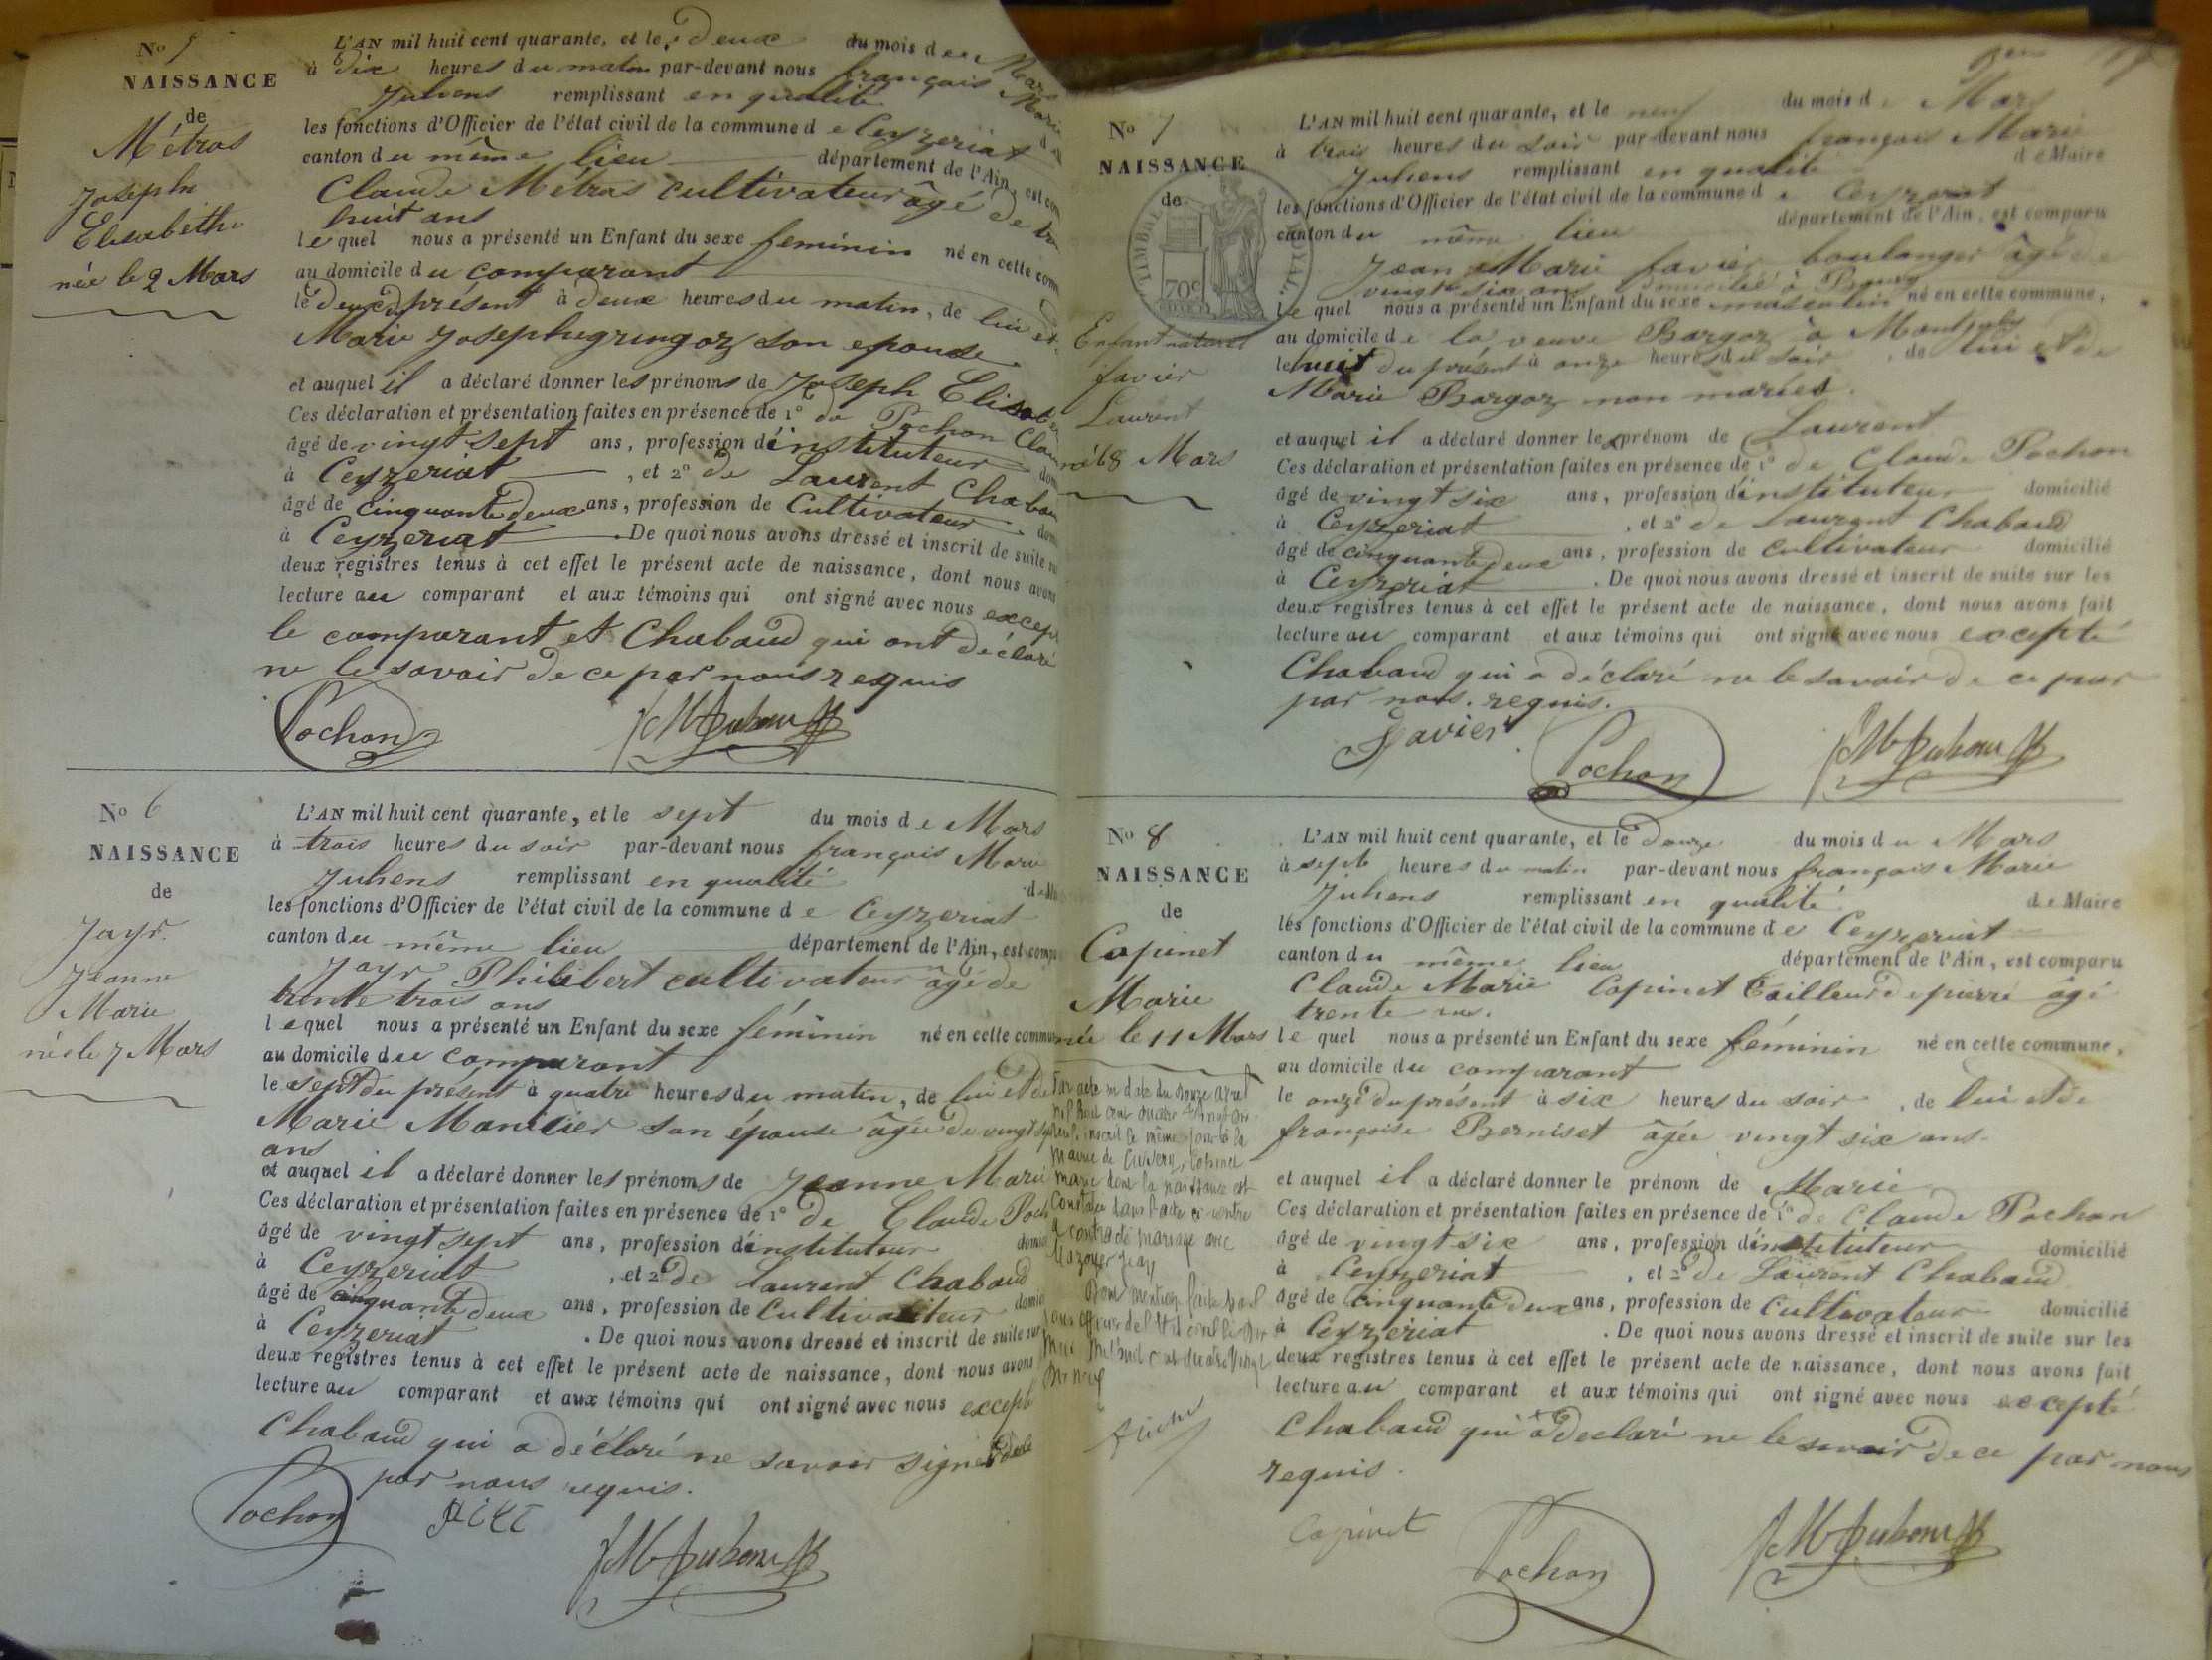 No 5
NAISSANCE
de
Métras
Joseph
Elisabeth
née le 2 Mars
L'AN mil huit cent quarante, et le deux du mois de Mars
à dix heures du matin par-devant nous françois Marie
Juhens remplissant en qualité
les fonctions d'Officier de l'état civil de la commune de Ceyzeriat
canton du même lieu département de l'Ain, est com
Claude Métras cultivateur âgé de
huit ans
lequel nous a présenté un Enfant du sexe féminin né en cette com
au domicile du comparant
le deux du présent à deux heures du matin, de lui et
Marie Josephe gringoz son epouse
et auquel il a déclaré donner les prénoms de Joseph Elisabe
Ces déclaration et présentation faites en présence de 1° de Pochon Clau
âgé de vingt sept ans, profession d'instituteur dom
à Ceyzeriat, et 2° de Laurent Chabau
âgé de cinquante deux ans, profession de Cultivateur dom
à Ceyzeriat. De quoi nous avons dressé et inscrit de suite
deux registres tenus à cet effet le présent acte de naissance, dont nous avons
lecture au comparant et aux témoins qui ont signé avec nous except
le comparant et Chabaud qui ont déclaré
ne le savoir de ce par nous requis
Pochon
No 6
NAISSANCE
de
Jayr
Jeanne
Marie
née le 7 Mars
L'AN mil huit cent quarante, et le sept du mois de Mars
à trois heures du soir par-devant nous françois Marie
Juhens remplissant en qualité
les fonctions d'Officier de l'état civil de la commune de Ceyzeriat
canton du même lieu département de l'Ain, est compa
Jayr Philibert cultivateur âgé de
trente trois ans
lequel nous a présenté un Enfant du sexe féminin né en cette commun
au domicile du comparant
le sept du présent à quatre heures du matin, de lui et de
Marie Mantelier son épouse âgée de vingt sept
ans
et auquel il a déclaré donner les prénoms de Jeanne Marie
Ces déclaration et présentation faites en présence de 1° de Claude Poch
âgé de vingt sept ans, profession d'instituteur domici
à Ceyzeriat, et 2° de Laurent Chabaud
âgé de cinquante deux ans, profession de Cultivateur domici
à Ceyzeriat. De quoi nous avons dressé et inscrit de suite sur
deux registres tenus à cet effet le présent acte de naissance, dont nous avons
lecture au comparant et aux témoins qui ont signé avec nous excepté
Chabaud qui a déclaré ne savoir signer de ce
par nous requis.
Pochon
No 7
NAISSANCE
de
TIMBRE ROYAL
70c
Enfant naturel
favier
Laurent
né le 8 Mars
L'AN mil huit cent quarante, et le neuf du mois de Mars
à trois heures du soir par-devant nous françois Marie
Juhens remplissant en qualité de Maire
les fonctions d'Officier de l'état civil de la commune de Ceyzeriat
canton du même lieu département de l'Ain, est comparu
Jean Marie favier boulanger âgé de
vingt six ans domicilié à Bourg
lequel nous a présenté un Enfant du sexe masculin né en cette commune,
au domicile de la veuve Bargoz à
le huit du présent à onze heures du soir, de lui et de
Marie Bargoz non mariés.
et auquel il a déclaré donner le prénom de Laurent
Ces déclaration et présentation faites en présence de 1° de Claude Pochon
âgé de vingt six ans, profession d'instituteur domicilié
à Ceyzeriat, et 2° de Laurent Chabaud
âgé de cinquante deux ans, profession de Cultivateur domicilié
à Ceyzeriat. De quoi nous avons dressé et inscrit de suite sur les
deux registres tenus à cet effet le présent acte de naissance, dont nous avons fait
lecture au comparant et aux témoins qui ont signé avec nous excepté
Chabaud qui a déclaré ne le savoir de ce
par nous requis.
Favier Pochon
No 8
NAISSANCE
de
Copinet
Marie
née le 11 Mars
Par acte en date du douze avril
mil huit cent quatre vingt dix
neuf, inscrit le même jour à la
mairie de Copinet
Marie dont la naissance est
constatée dans l'acte ci-contre
a contracté mariage avec
Dont mention faite par
nous officier de l'état civil
mil huit cent quatre vingt
dix neuf
L'AN mil huit cent quarante, et le douze du mois de Mars
à sept heures du matin par-devant nous françois Marie
Juhens remplissant en qualité de Maire
les fonctions d'Officier de l'état civil de la commune de Ceyzeriat
canton du même lieu département de l'Ain, est comparu
Claude Marie Copinet Tailleur de pierre âgé
trente ans.
lequel nous a présenté un Enfant du sexe féminin né en cette commune,
au domicile du comparant
le onze du présent à six heures du soir, de lui et de
françoise Berniset âgée vingt six ans.
et auquel il a déclaré donner le prénom de Marie
Ces déclaration et présentation faites en présence de 1° de Claude Pochon
âgé de vingt six ans, profession d'instituteur domicilié
à Ceyzeriat, et 2° de Laurent Chabaud
âgé de cinquante deux ans, profession de Cultivateur domicilié
à Ceyzeriat. De quoi nous avons dressé et inscrit de suite sur les
deux registres tenus à cet effet le présent acte de naissance, dont nous avons fait
lecture au comparant et aux témoins qui ont signé avec nous excepté
Chabaud qui a déclaré ne le savoir de ce par nous
requis.
Copinet Pochon